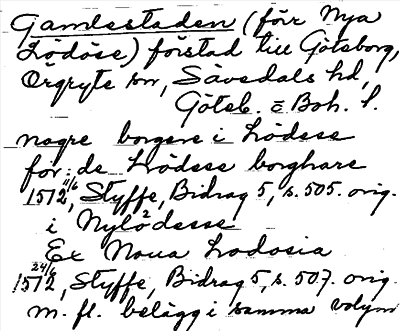 Gamlestaden (förr Nya
Lödöse) förstad till Göteborg,
Örgryte sn, Sävedals hd,
Göteb. o. Boh. l.
nagre borgere i Lödese
for: de Lödese borghare
1512 11/6, Styffe, Bidrag 5, s. 505. orig.
i Nylödesse
Ex Noua Lodosia
1512 24/6, Styffe, Bidrag 5, s. 507. orig.
m. fl. belägg i samma volym